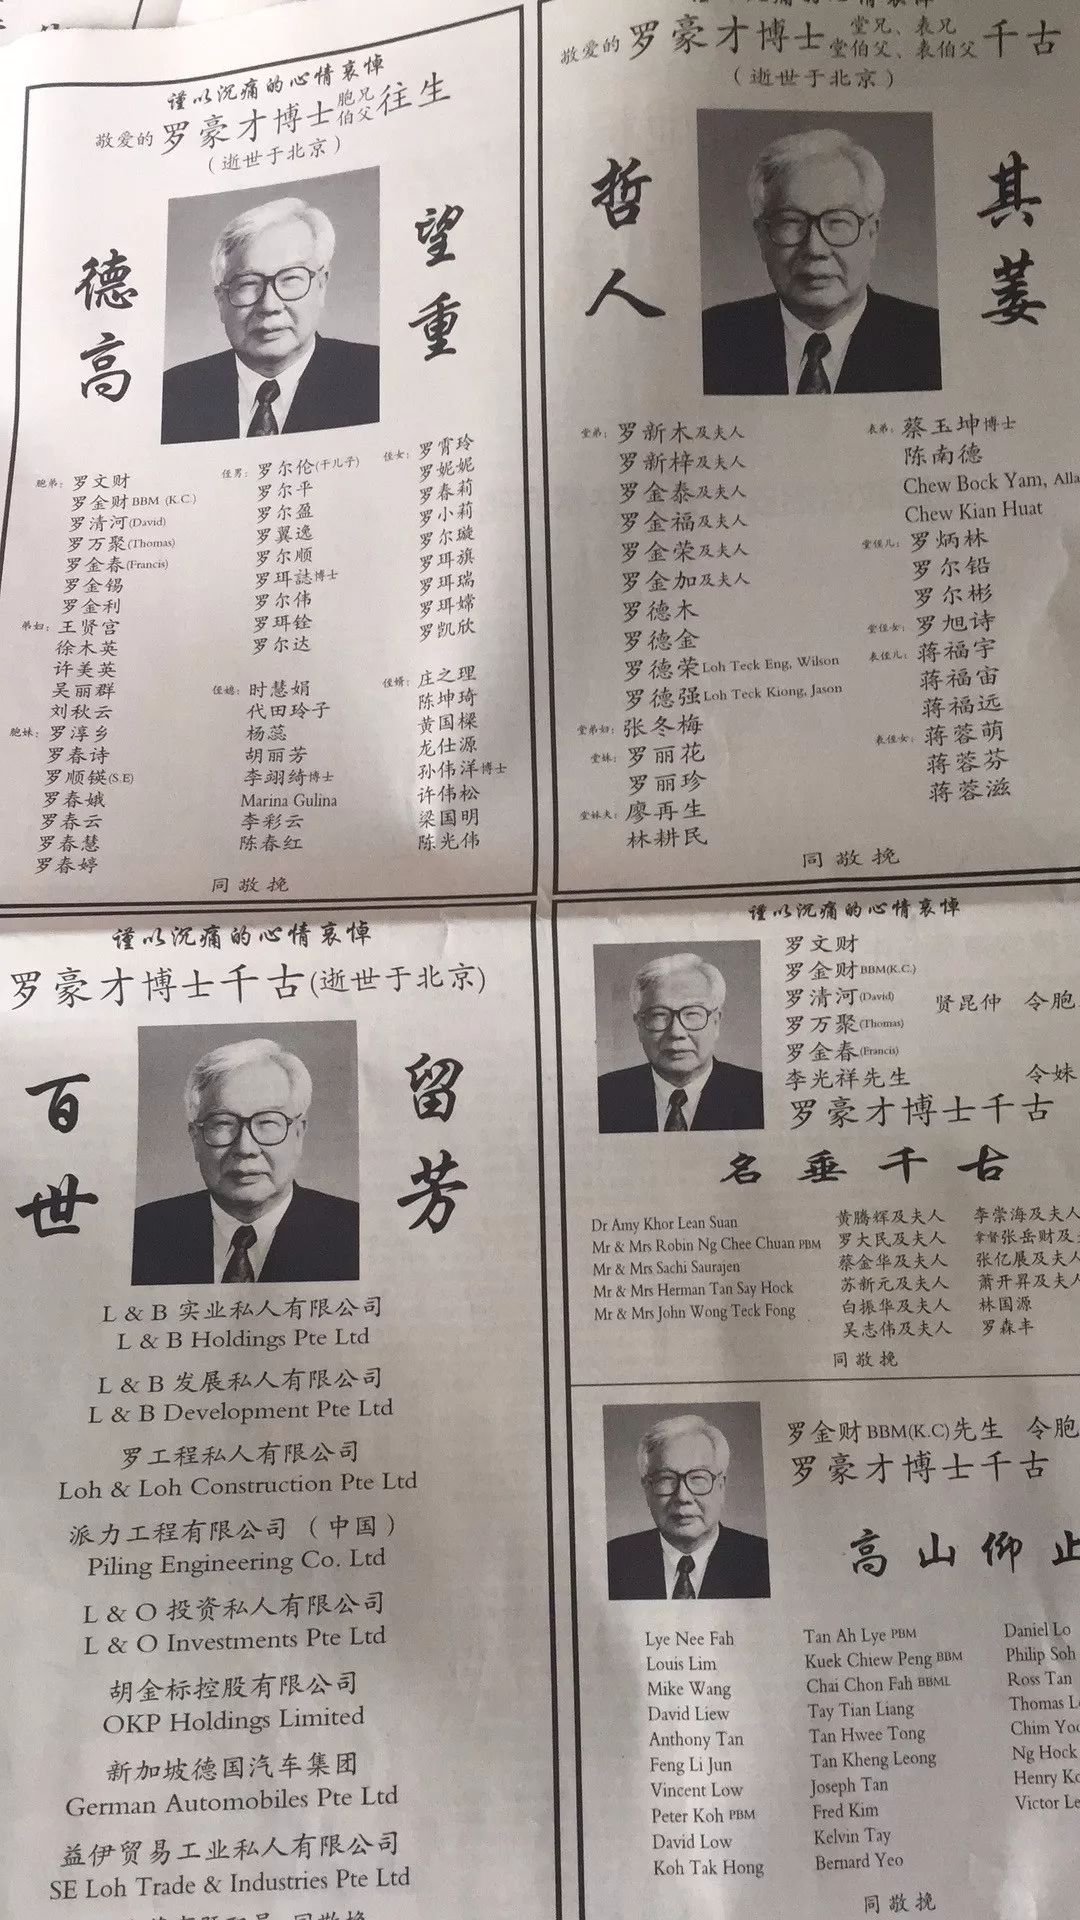 谨以沉痛的心情哀悼
敬爱的 罗豪才博士 胞兄 伯父 往生
(逝世于北京)
德高
望重
胞弟: 罗文财
罗金财 BBM (K.C.)
罗清河 (David)
罗万聚 (Thomas)
罗金春 (Francis)
罗金锡
罗金利
弟妇: 王贤宫
徐木英
许美英
吴丽群
刘秋云
胞妹: 罗淳乡
罗春诗
罗顺锳 (S.E)
罗春娥
罗春云
罗春慧
罗春婷
侄男: 罗尔伦 (干儿子)
罗尔平
罗尔盈
罗翼逸
罗尔顺
罗珥誌博士
罗尔伟
罗珥铨
罗尔达
侄媳: 时慧娟
代田玲子
杨蕊
胡丽芳
李翊绮博士
Marina Gulina
李彩云
陈春红
侄女: 罗霄玲
罗妮妮
罗春莉
罗小莉
罗尔璇
罗珥旗
罗珥瑞
罗珥嫦
罗凯欣
侄婿: 庄之理
陈坤琦
黄国樑
龙仕源
孙伟洋博士
许伟松
梁国明
陈光伟
同敬挽
敬爱的 罗豪才博士 堂兄、表兄 堂伯父、表伯父 千古
(逝世于北京)
哲人
其萎
堂弟: 罗新木及夫人
罗新梓及夫人
罗金泰及夫人
罗金福及夫人
罗金荣及夫人
罗金加及夫人
罗德木
罗德金
罗德荣 Loh Teck Eng, Wilson
罗德强 Loh Teck Kiong, Jason
堂弟妇: 张冬梅
堂妹: 罗丽花
罗丽珍
堂妹夫: 廖再生
林耕民
表弟: 蔡玉坤博士
陈南德
Chew Bock Yam, Alla
Chew Kian Huat
堂侄儿: 罗炳林
罗尔铅
罗尔彬
堂侄女: 罗旭诗
表侄儿: 蒋福宇
蒋福宙
蒋福远
表侄女: 蒋蓉萌
蒋蓉芬
蒋蓉滋
同敬挽
谨以沉痛的心情哀悼
罗豪才博士千古(逝世于北京)
百世
留芳
L & B 实业私人有限公司
L & B Holdings Pte Ltd
L & B 发展私人有限公司
L & B Development Pte Ltd
罗工程私人有限公司
Loh & Loh Construction Pte Ltd
派力工程有限公司 (中国)
Piling Engineering Co. Ltd
L & O 投资私人有限公司
L & O Investments Pte Ltd
胡金标控股有限公司
OKP Holdings Limited
新加坡德国汽车集团
German Automobiles Pte Ltd
益伊贸易工业私人有限公司
SE Loh Trade & Industries Pte Ltd
同敬挽
谨以沉痛的心情哀悼
罗文财
罗金财 BBM(K.C.)
罗清河 (David)
罗万聚 (Thomas)
罗金春 (Francis)
李光祥先生
贤昆仲 令胞
令妹
罗豪才博士千古
名垂千古
Dr Amy Khor Lean Suan
Mr & Mrs Robin Ng Chee Chuan PBM
Mr & Mrs Sachi Saurajen
Mr & Mrs Herman Tan Say Hock
Mr & Mrs John Wong Teck Fong
黄腾辉及夫人
罗大民及夫人
蔡金华及夫人
苏新元及夫人
白振华及夫人
吴志伟及夫人
李崇海及夫人
拿督张岳财及
张亿展及夫人
萧开昇及夫人
林国源
罗森丰
同敬挽
罗金财 BBM(K.C)先生 令胞
罗豪才博士千古
高山仰止
Lye Nee Fah
Louis Lim
Mike Wang
David Liew
Anthony Tan
Feng Li Jun
Vincent Low
Peter Koh PBM
David Low
Koh Tak Hong
Tan Ah Lye PBM
Kuek Chiew Peng BBM
Chai Chon Fah BBML
Tay Tian Liang
Tan Hwee Tong
Tan Kheng Leong
Joseph Tan
Fred Kim
Kelvin Tay
Bernard Yeo
Daniel Lo
Philip Soh
Ross Tan
Thomas L
Chim Yoo
Ng Hock
Henry Ko
Victor Le
同敬挽